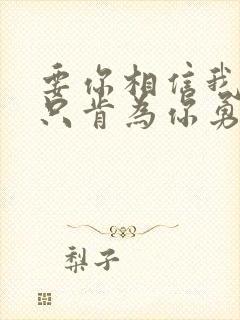 要你相信我
只肯为你勇
梨子